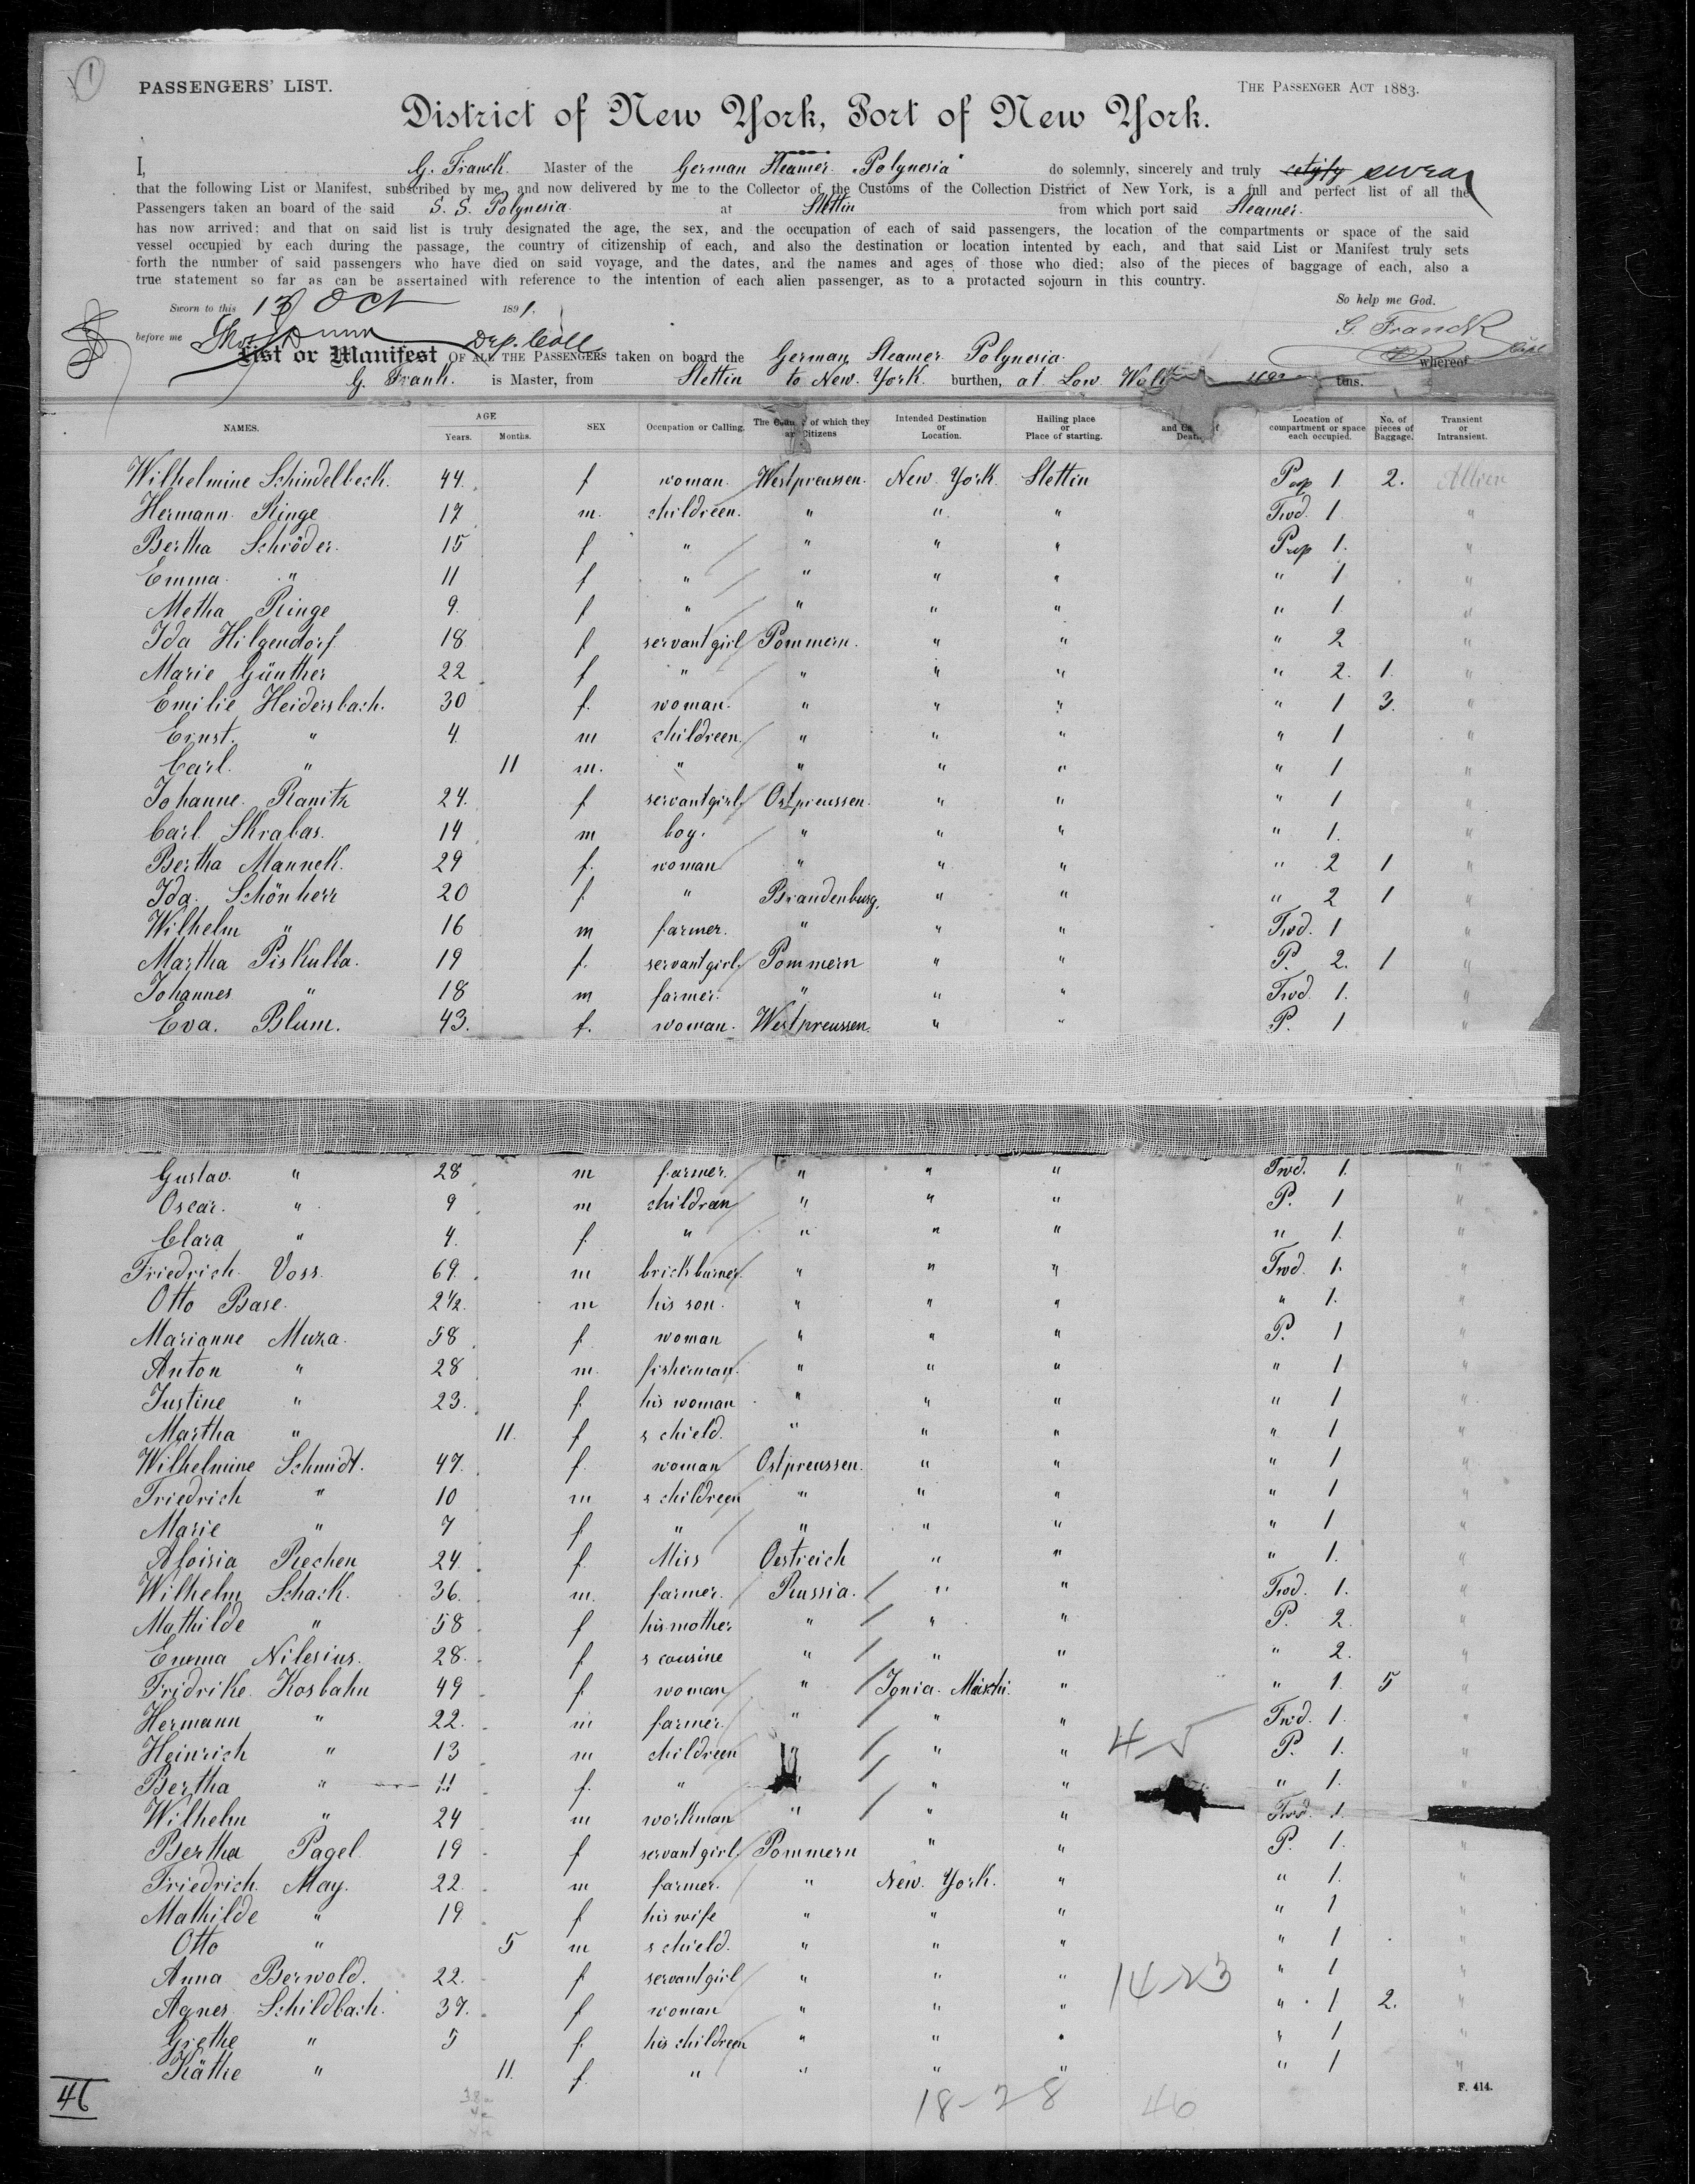 1
PASSENGERS' LIST.
THE PASSENGER ACT 1883.
District of New York, Port of New York.
I, G. Franck Master of the German Steamer "Polynesia" do solemnly, sincerely and truly certify swear
that the following List or Manifest, subscribed by me, and now delivered by me to the Collector of the Customs of the Collection District of New York, is a full and perfect list of all the
Passengers taken an board of the said S. S. Polynesia at Stettin from which port said Steamer.
has now arrived; and that on said list is truly designated the age, the sex, and the occupation of each of said passengers, the location of the compartments or space of the said
vessel occupied by each during the passage, the country of citizenship of each, and also the destination or location intented by each, and that said List or Manifest truly sets
forth the number of said passengers who have died on said voyage, and the dates, and the names and ages of those who died; also of the pieces of baggage of each, also a
true statement so far as can be assertained with reference to the intention of each alien passenger, as to a protacted sojourn in this country.
Sworn to this 13 Oct 1891. So help me God.
before me Dep. Coll G. Franck
List or Manifest OF ALL THE PASSENGERS taken on board the German Steamer Polynesia whereof
G. Frank. is Master, from Stettin to New York. burthen, at Low tons.
NAMES. AGE Years. Months. SEX Occupation or Calling. The of which they are Citizens Intended Destination or Location. Hailing place or Place of starting. and Death Location of compartment or space each occupied. No. of pieces of Baggage. Transient or Intransient.
Wilhelmine Schindelbeck. 44. f woman. Westpreussen. New York. Stettin Prop 1 2.
Hermann Ringe 17 m. childreen. " " " Twd. 1 "
Bertha Schröder. 15 f " " " " Prop 1. "
Emma " 11 f " " " " " 1 "
Metha Ringe 9. f " " " " " 1. "
Ida Hilgendorf 18 f servantgirl Pommern. " " " 2 "
Marie Günther 22 f " " " " " 2. 1. "
Emilie Heidersbach. 30 f. woman. " " " " 1 3. "
Ernst. " 4. m childreen. " " " " 1 "
Carl. " 11 m. " " " " " 1 "
Johanne Ranitz 24. f servantgirl. Ostpreussen. " " " 1 "
Carl Skrabas. 14 m boy. " " " " 1. "
Bertha Manneck. 29 f. woman " " " " 2 1 "
Ida Schönherr 20 f " Brandenburg. " " " 2 1 "
Wilhelm " 16 m farmer. " " " Twd. 1 "
Martha Piskulla. 19 f. servantgirl. Pommern " " P. 2. 1 "
Johannes " 18 m farmer. " " " Twd. 1. "
Eva. Blum. 43. f. woman. Westpreussen. " " P. 1 "
Gustav. " 28 m farmer. " " " Twd. 1. "
Oscar. " 9 m children " " " P. 1 "
Clara " 4. f. " " " " " 1. "
Friedrich Voss. 69. m brickburner. " " " Twd. 1. "
Otto Base. 2 1/2. m his son. " " " " 1. "
Marianne Muza. 58 f woman " " " P. 1 "
Anton " 28 m. fisherman. " " " " 1 "
Justine " 23. f. his woman " " " " 1 "
Martha " 11. f s chield. " " " " 1 "
Wilhelmine Schmidt. 47. f. woman Ostpreussen. " " " 1 "
Friedrich " 10 m s childreen " " " " 1 "
Marie " 7 f " " " " " 1 "
Aloisia Rechen 24. f. Miss Oestreich " " " 1. "
Wilhelm Schack. 36. m. farmer. Russia. " " Twd. 1. "
Mathilde " 58 f his mother " " " P. 2. "
Emma Nilesius. 28. f s cousine " " " " 2. "
Fridrike Kosbahn 49 f woman " Ionia " " 1. 5 "
Hermann " 22. m farmer. " " " Twd. 1. "
Heinrich " 13 m childreen " " " P. 1. "
Bertha " 11 f. " " " " " 1. "
Wilhelm " 24 m workman " " " Twd. 1.
Bertha Pagel 19 f servantgirl. Pommern " " P. 1. "
Friedrich May. 22. m farmer. " New York. " " 1. "
Mathilde " 19 f his wife " " " " 1 "
Otto " 5 m s chield. " " " " 1 "
Anna Berwold. 22. f servantgirl " " " " 1 "
Agnes Schildbach. 37. f woman " " " " 1 2. "
Grethe " 5 f. his childreen " " " " 1 "
Käthe " 11. f. " " " " " 1 "
46 18-28 46 F. 414.